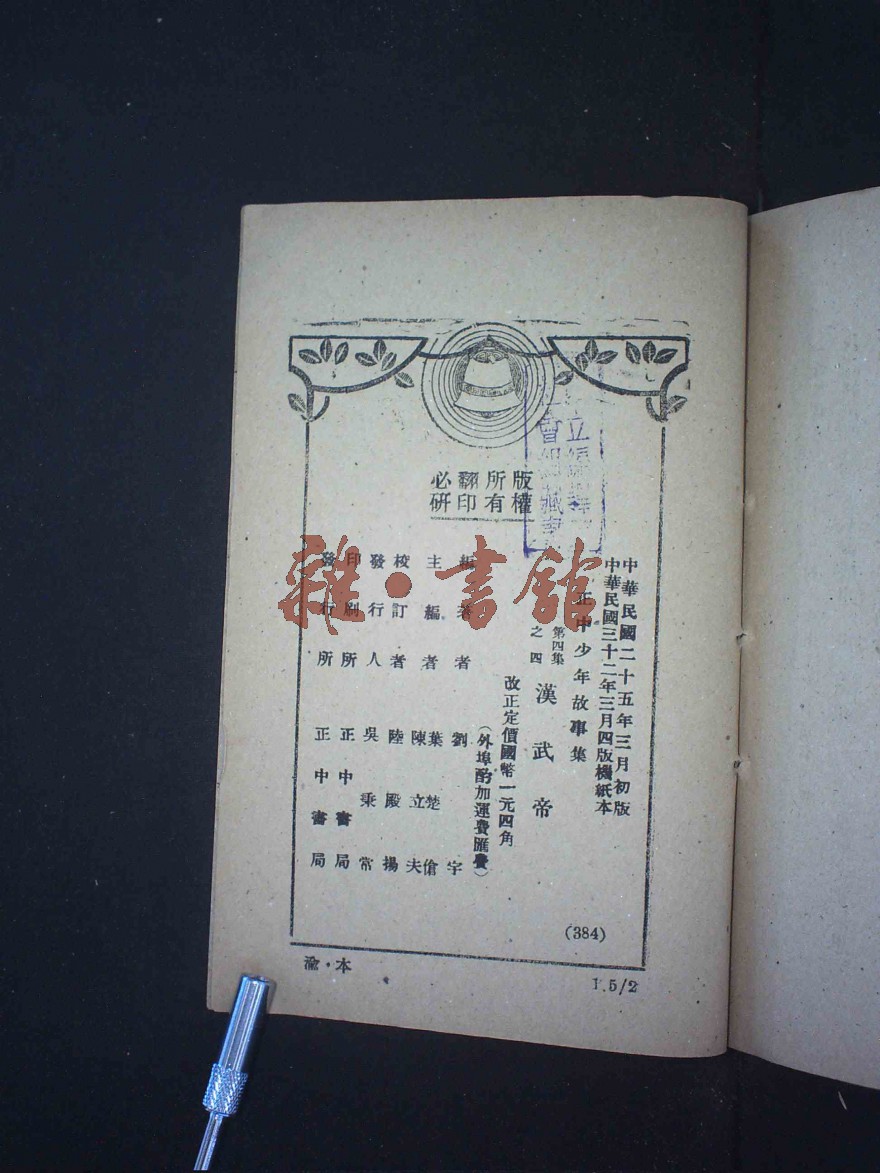 版權
所有
翻印
必研
中華民國二十五年三月初版
中華民國三十二年三月四版機紙本
正中少年故事集
第四集
之四
漢武帝
改正定價國幣一元四角
（外埠酌加運費匯費）
編著者 劉宇
主編者 葉楚傖 陳立夫
校訂者 陸殿揚
發行人 吳秉常
印刷所 正中書局
發行所 正中書局
(384)
渝·本
1.5/2
雜·書館